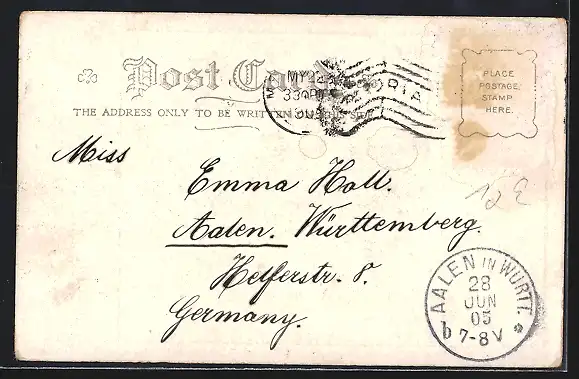 Post Card
THE ADDRESS ONLY TO BE WRITTEN ON THIS SIDE
PLACE
POSTAGE
STAMP
HERE.
MY 2
330 P
05
ORIA
Miss
Emma Holl.
Aalen. Württemberg.
Helferstr. 8.
Germany.
AALEN IN WÜRTT.
28
JUN
05
b 7-8 V *